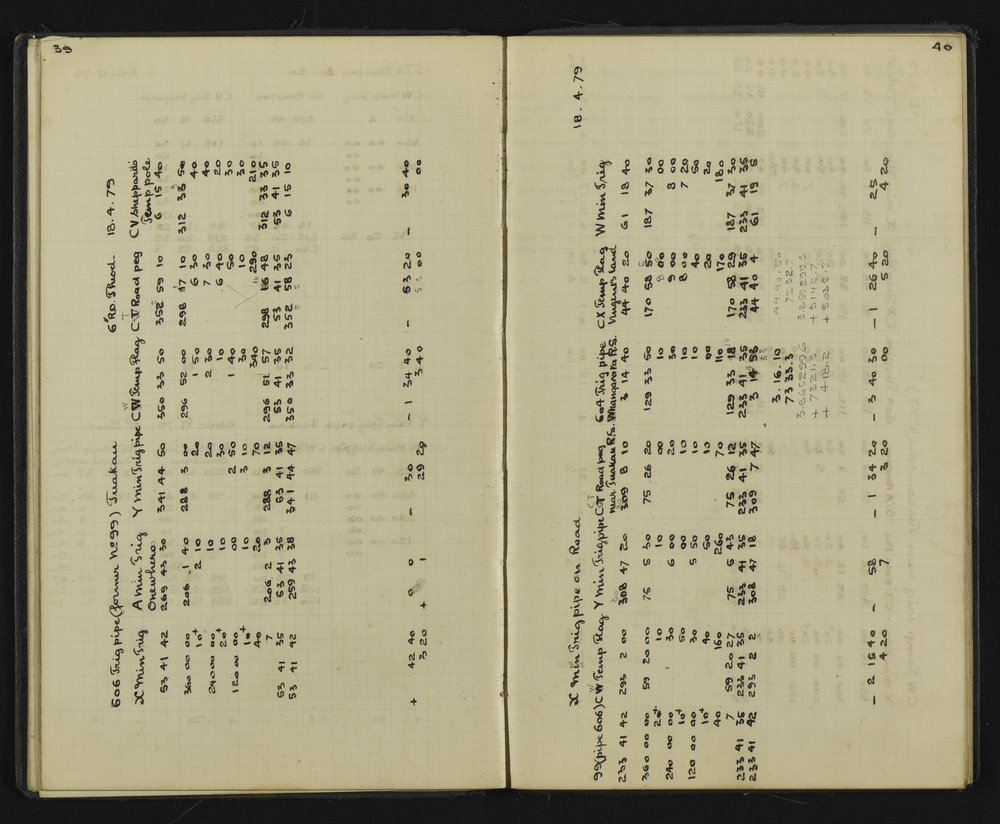 39
606 Trig pipe (former No 99) Tuakau 6" R.D. Theod. 18.4.79
X Min Trig A Min Trig Onewhero Y Min Trig pipe CW Temp Flag CT Road peg CV Sheppard's Temp pole
53 41 42 269 43 30 341 44 50 350 33 50 352 59 10 6 15 40
360 00 00 206 1 40 288 3 00 296 52 00 298 17 10 312 33 50
10+ 2 10 20 1 50 6 30 40
240 00 00 10 20 2 30 7 30 40
20+ 10 30 10 6 40 20
120 00 00 00 2 50 1 40 50 30
10+ 10 3 10 30 10 30
40 20 70 340 290 210
7 206 2 3 288 3 12 296 51 57 298 16 48 312 33 35
53 41 35 53 41 35 53 41 35 53 41 35 53 41 35 53 41 35
53 41 42 259 43 38 341 44 47 350 33 32 352 58 23 6 15 10
+ 42 40 0 0 - 30 - 1 34 40 - 53 20 - 30 40
3 20 + 1 29 20 3 40 53 00 00
40
X Min Trig pipe on Road 18.4.79
99 (pipe 606) CW Temp Flag Y Min Trig pipe CT Road peg near Tuakau R.S. 604 Trig pipe Whangarata R.S. CX Temp Flag Nugent's land W Min Trig
233 41 42 293 2 00 308 47 20 309 8 10 3 14 40 44 40 20 61 18 40
360 00 00 59 20 00 75 5 30 75 26 20 129 33 50 170 58 50 187 37 30
20+ 10 10 00 10 8 00 00
240 00 00 30 6 00 20 30 9 00 8 00
10+ 50 00 10 10 8 00 7 20
120 00 00 30 5 50 10 10 40 50
10+ 40 50 10 00 20 20
40 160 260 70 110 170 180
7 59 20 27 75 5 43 75 26 12 129 33 18 170 58 29 187 37 30
233 41 35 233 41 35 233 41 35 233 41 35 233 41 35 233 41 35 233 41 35
233 41 42 293 2 2 308 47 18 309 7 47 3 14 53 44 40 4 61 19 5
3.16.10 44.40.50
7333.3 7232.7
3865299.6 3859299.3
+ 7321.3 + 5142.7
+ 418.2 + 5085.7
- 2 15 40 - 58 - 1 34 20 - 3 40 30 - 1 26 40 - 25
4 20 7 3 20 00 5 20 4 20